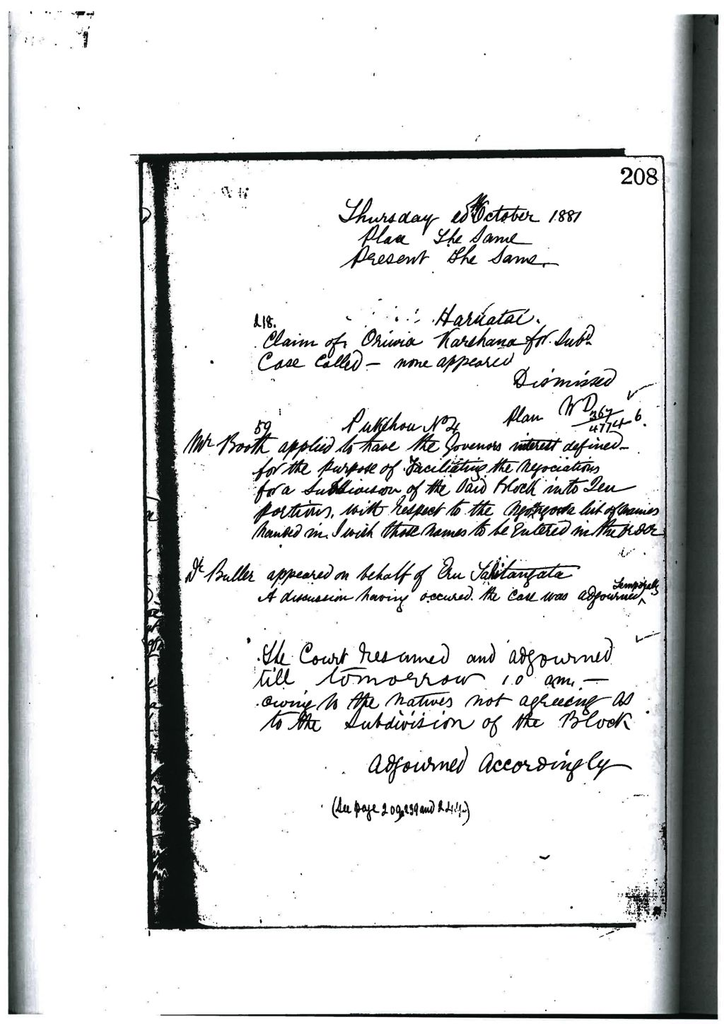 208
Thursday October 1881
Place The Same
Present The Same
218. Haruatai.
Claim of Oriwia Karehana for Subd
Case Called — none appeared
Dismissed
59 Pukehou No 4 Plan WD 6
Mr Booth applied to have the Govenors interest defined
for the purpose of Faciliating the Negociations
for a Subdivision of the Said Block into Ten
portions, with respect to the list of names
handed in. I wish those names to be Entered in the order
Dr Buller appeared on behalf of Eru
A discussion having occured. the case was adjourned temporally
The Court resumed and adjourned
till tomorrow 10 am —
owing to the natives not agreeing as
to the Subdivision of the Block
Adjourned Accordingly
(See page 209, 239 and 241)